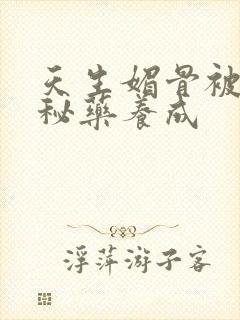 天生媚骨被
秘药养成
浮萍游子客